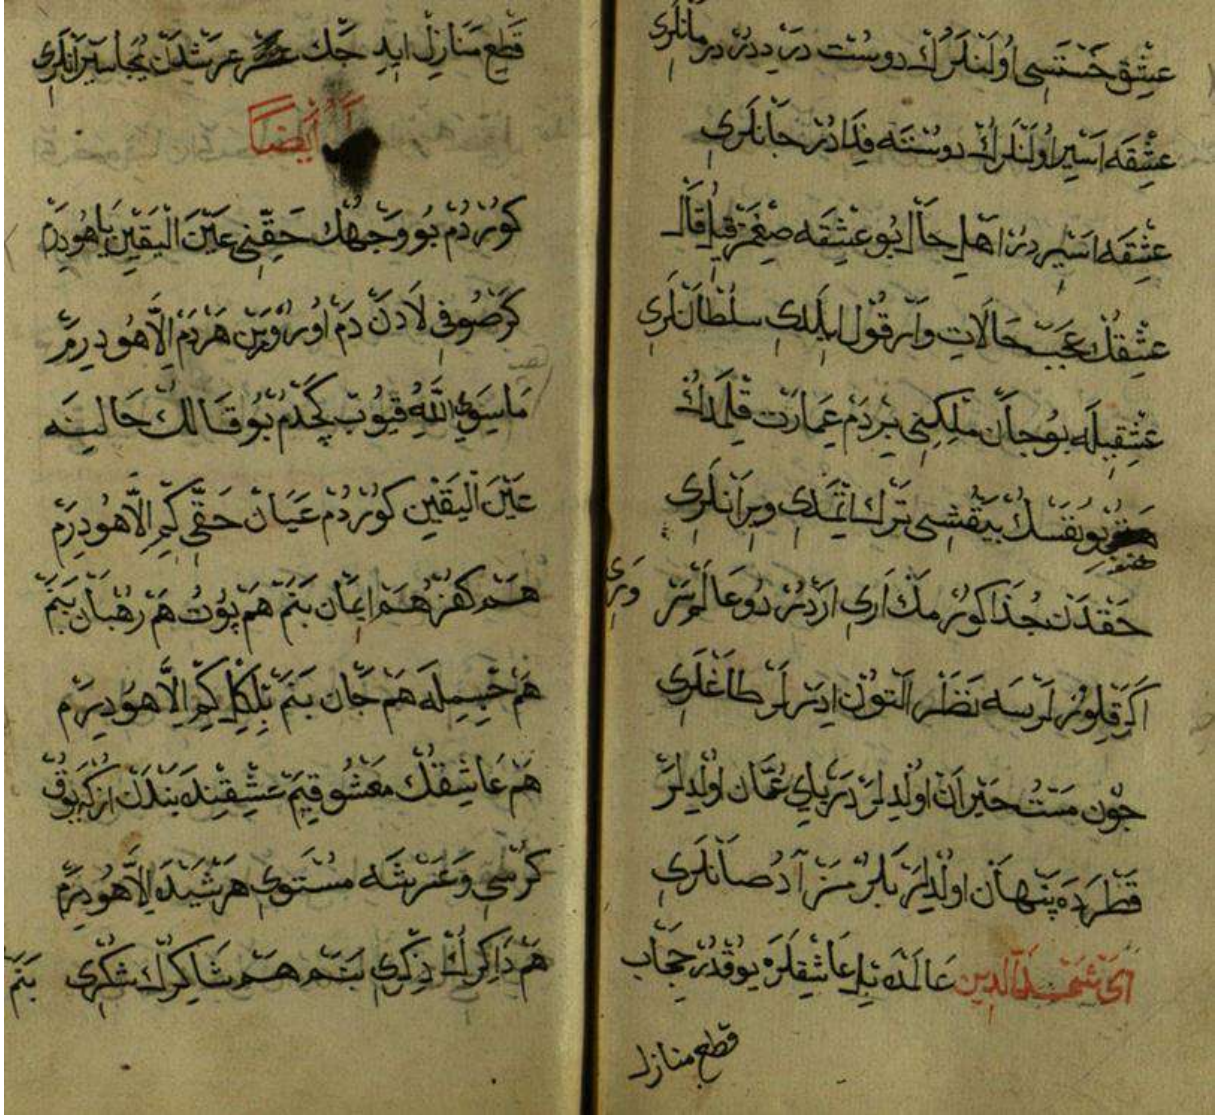 عشق خستسی اولنلرك دوست دریدر درمانلری
عشقه اسیر اولنلرك دوستنه فدادر جانلری
عشقه اسیردر اهل حال بو عشقه صغمز قیل قال
عشقك عجب حالات وار قول ایلدی سلطانلری
عشقیله بو جان ملکنی بردم عمارت قلمدك
بو نفسك بیقشی ترك اتمدی ویرانلری
حقدن جدا کورمك اری اردر دو عالم سرور
اکر قلورلرسه نظر التون ایدرلر طاغلری
چون مست حیران اولدیلر دریای عمان اولدیلر
قطره ده پنهان اولدیلر بلرسز آد صانلری
ای شمس الدین عالمده بل عاشقلره یوقدر حجاب
قطع منازل
قطع منازل ایدجك عرشدن یجا سیرانلری
ایضا
کوردم بو وجهك حقنی عین الیقین یاهو دیرم
کر صوفی لادن دم اورر بن هردم الا هو دیرم
ماسوی الله قیوب کچدم بو قالك حالینه
عین الیقین کوردم عیان حقی کم الا هو دیرم
هم کفر هم ایمان بنم هم پوت هم رهبان بنم
هم جسمله هم جان بنم بلکل کم الا هو دیرم
هم عاشقك معشوقیم عشقنده بندن ارکه یوق
کرسی و عرشه مستوی هر شیده الا هو دیرم
هم ذاکرك ذکری بنم هم شاکرك شکری بنم